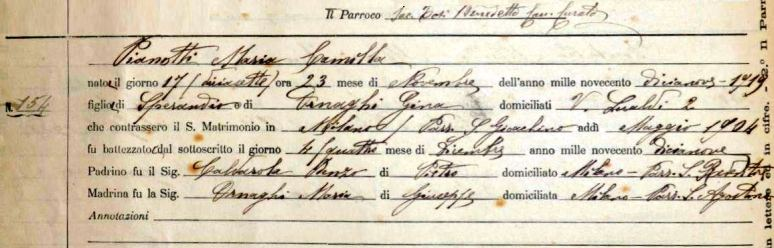 Il Parroco Sac. Dott. Benedetto
Pianotti Maria Camilla
nato il giorno 17 (diciasette) ora 23 mese di Novembre dell'anno mille novecento dicianove - 1919
N. 154
figlio di Sperandio e di Ornaghi Gina domiciliati V. Lualdi 2
che contrassero il S. Matrimonio in Milano / Parr. S. Gioachino addì Maggio 1904
fu battezzato dal sottoscritto il giorno 4 (quattro mese di Dicembre anno mille novecento dicianove
Padrino fu il Sig. di Pietro domiciliato Milano - Parr. S.
Madrina fu la Sig. Ornaghi Maria di Giuseppe domiciliata Milano - Parr. S. Agostino
Annotazioni